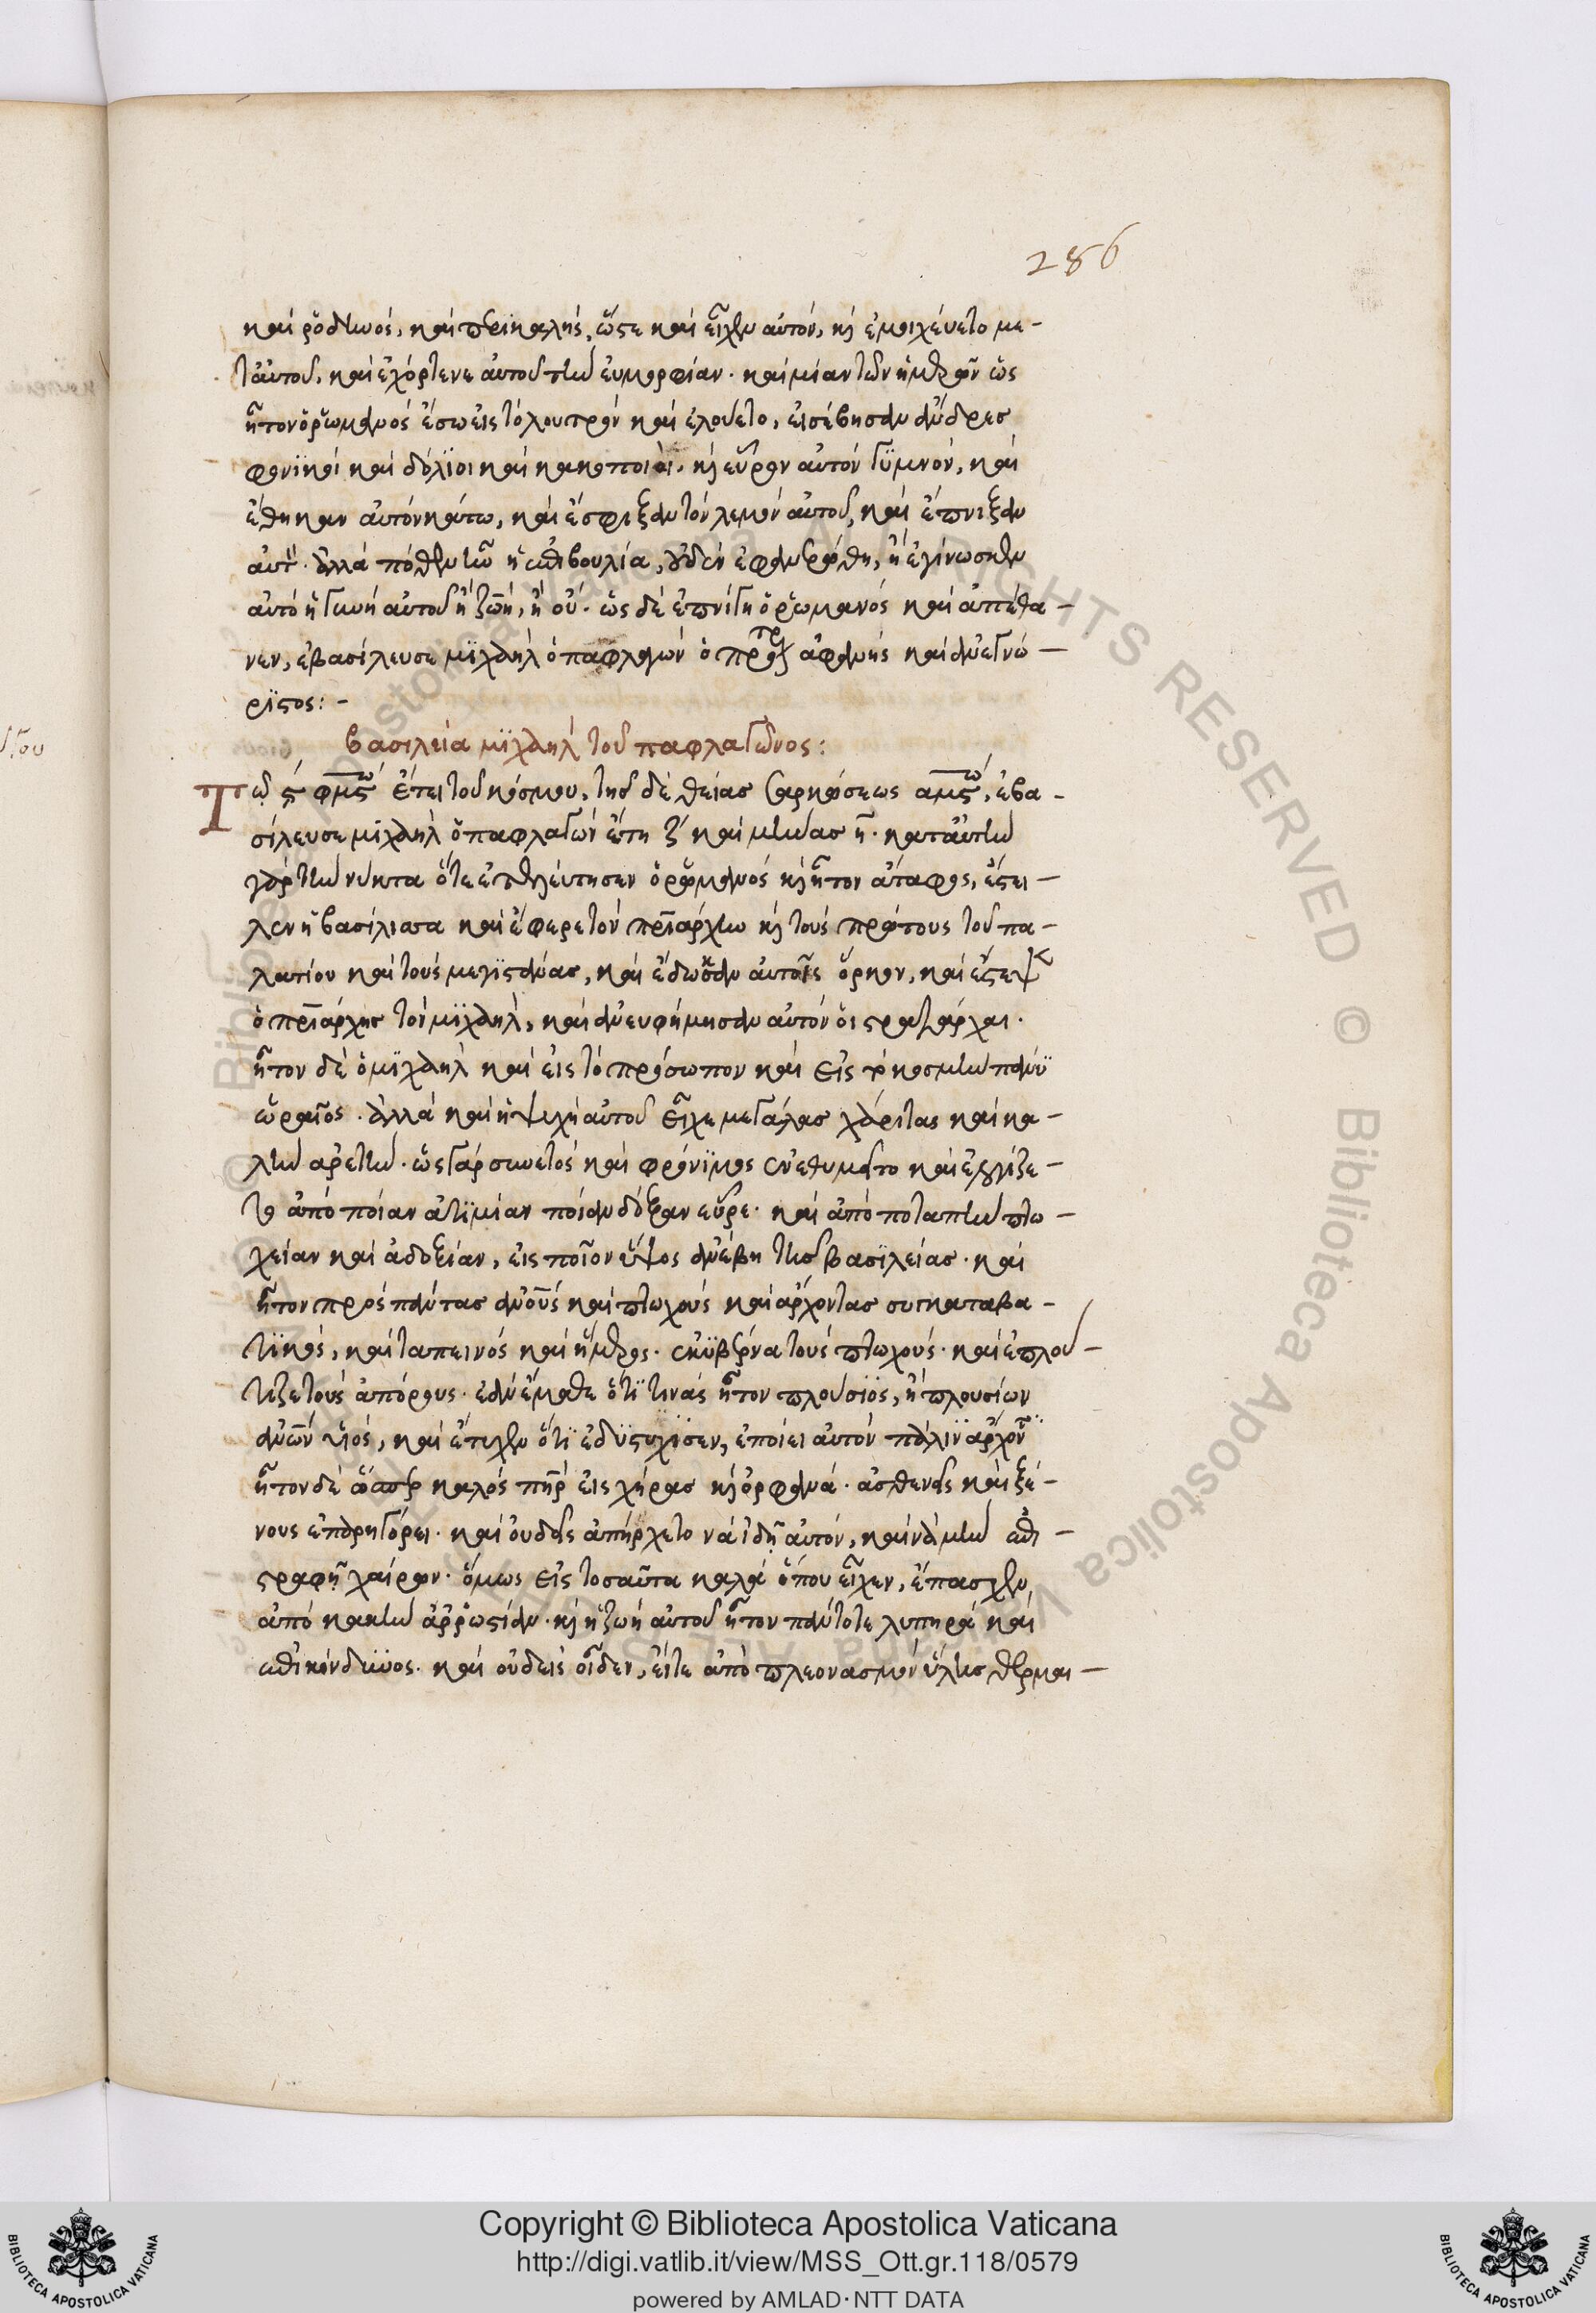 286
καὶ ῥοδινός, καὶ περικαλής, ὥστε καὶ εἶχεν αὐτόν, κὶ ἐμοιχεύετο με-
τ' αὐτοῦ, καὶ ἐχόρτενε αὐτοῦ τὴν εὐμορφίαν. καὶ μίαν τῶν ἡμερῶν ὡς
ἦτον ὁ ῥωμανός ἔσω εἰς τὸ λουτρόν καὶ ἐλούετο, εἰσέβησαν ἄνδρες
φονϊκοί καὶ δόλϊοι καὶ κακοποιοί, κὶ εὗρον αὐτόν γϋμνόν, καὶ
ἔθηκαν αὐτόν κάτω, καὶ ἔσφιξαν τὸν λεμόν αὐτοῦ, καὶ ἔπνιξαν
αὐτὸν. ἀλλὰ πόθεν ἦν ἡ ἐπιβουλία, οὐδὲν ἐφανερώθη, ἢ ἐγίνωσκεν
αὐτό ἡ γυνή αὐτοῦ ἡ ζωή, ἢ οὔ. ὡς δὲ ἐπνίγη ὁ ῥωμανός καὶ ἀπέθα-
νεν, ἐβασίλευσε μϊχαὴλ ὁ παφλαγών ὁ ἀφανής καὶ ἀνεγνώ-
ριστος:-
βασιλεία μϊχαὴλ τοῦ παφλαγῶνος:
Τῷ ϛ φμϛω ἔτει τοῦ κόσμου, τῆς δὲ θείας σαρκώσεως αμϛω, ἐβα-
σίλευσε μϊχαὴλ ὁ παφλαγών ἔτη ζ καὶ μῆνας η. κατ' αὐτὴν
γὰρ τὴν νύκτα ὅτε ἐτελεύτησεν ὁ ῥωμανός κὶ ἦτον ἄταφος, ἔστει-
λεν ἡ βασίλισσα καὶ ἔφερε τὸν πριάρχην κὶ τοὺς πρώτους τοῦ πα-
λατίου καὶ τοὺς μεγϊστάνας, καὶ ἔδωσαν αὐτοῖς ὅρκον, καὶ ἔστεψε
ὁ πριάρχης τὸν μϊχαὴλ, καὶ ἀνευφήμησαν αὐτόν οἱ στρατάρχαι.
ἦτον δὲ ὁ μϊχαὴλ καὶ εἰς τὸ πρόσωπον καὶ εἰς τὸ κορμὶν πάνυ
ὡραῖος. ἀλλὰ καὶ ἡ ψυχὴ αὐτοῦ εἶχε μεγάλας χάριτας καὶ κα-
λὴν ἀρετὴν. ὡς γὰρ συνετός καὶ φρόνϊμος ἐνεθυμᾶτο καὶ ἐλογίζε-
το ἀπὸ ποίαν ἀτϊμίαν ποίαν δόξαν εὗρε. καὶ ἀπὸ ποταπὴν πτω-
χείαν καὶ ἀδοξίαν, εἰς ποῖον ὕψος ἀνέβη τῆς βασϊλείας. καὶ
ἦτον πρὸς πάντας ἀνούς καὶ πτωχούς καὶ ἄρχοντας συγκαταβα-
τϊκός, καὶ ταπεινός καὶ ἥμερος. ἐκϋβέρνα τοὺς πτωχούς. καὶ ἐπλού-
τιζε τοὺς ἀπόρους. ἐὰν ἔμαθε ὅτϊ τινὰς ἦτον πλούσϊος, ἢ πλουσίων
ἀνῶν υἱός, καὶ ἔτυχεν ὅτϊ ἐδϋστύχϊσεν, ἐποίει αὐτόν πάλϊν ἄρχον
ἦτον δὲ ὥσπερ καλός πὴρ εἰς χήρας κὶ ὀρφανά. ἀσθενεῖς καὶ ξέ-
νους ἐπαρηγόρει. καὶ οὐδεὶς ἀπήρχετο νὰ ἰδῇ αὐτόν, καὶ νὰ μὴν ἐπι-
στραφῇ χαίρων. ὅμως εἰς τοσαῦτα καλά ὅπου εἶχεν, ἔπασχεν
ἀπὸ κακὴν ἀρρωστίαν. κὶ ἡ ζωή αὐτοῦ ἦτον πάντοτε λυπηρά καὶ
ἐπικίνδυνος. καὶ οὐδεὶς οἶδεν, εἴτε ἀπὸ πλεονασμόν ὕλης θερμαι-
Copyright © Biblioteca Apostolica Vaticana
http://digi.vatlib.it/view/MSS_Ott.gr.118/0579
powered by AMLAD·NTT DATA